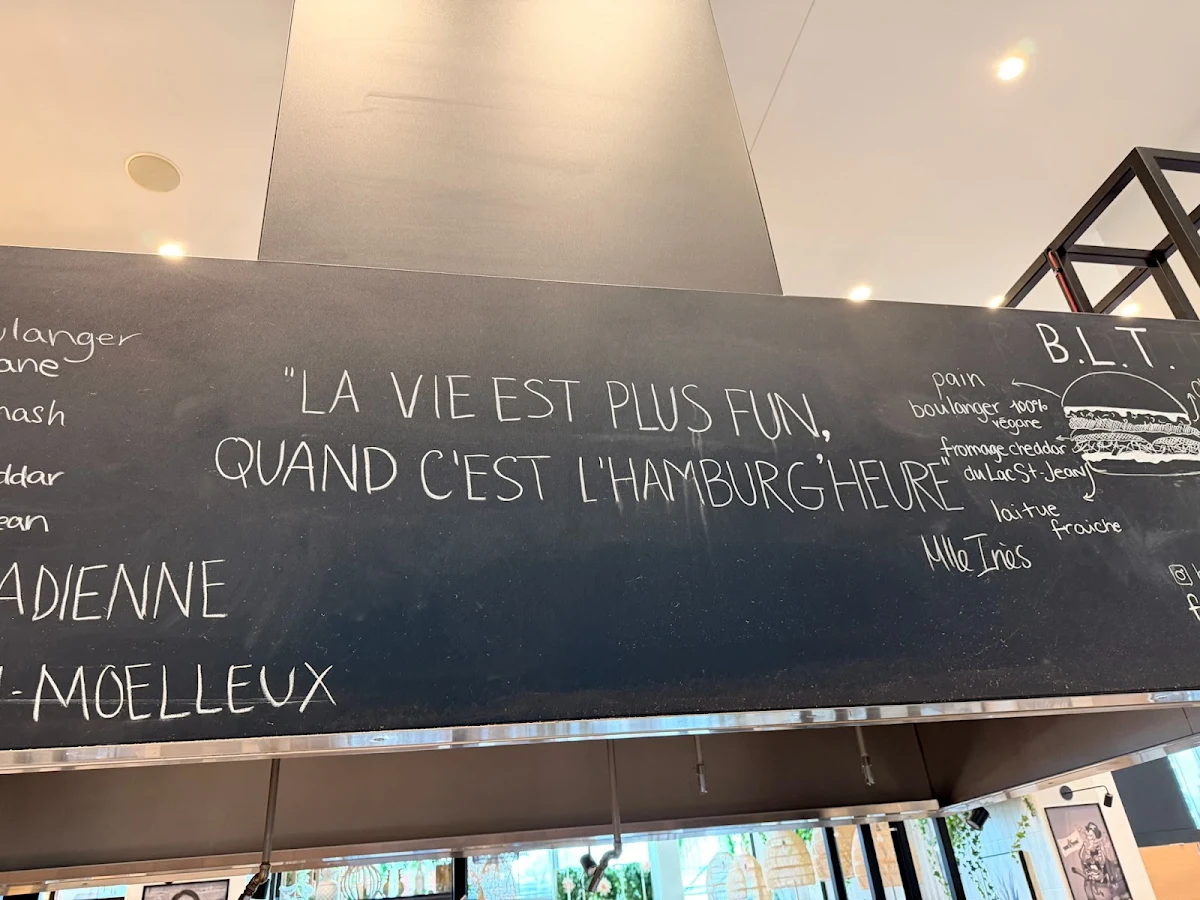 ulanger
ane
mash
ddar
ean
ADIENNE
-MOELLEUX
"LA VIE EST PLUS FUN,
QUAND C'EST L'HAMBURG'HEURE"
Mlle Inès
B.L.T.
pain
boulanger 100%
végane
fromage cheddar
du Lac St-Jean
laitue
fraiche